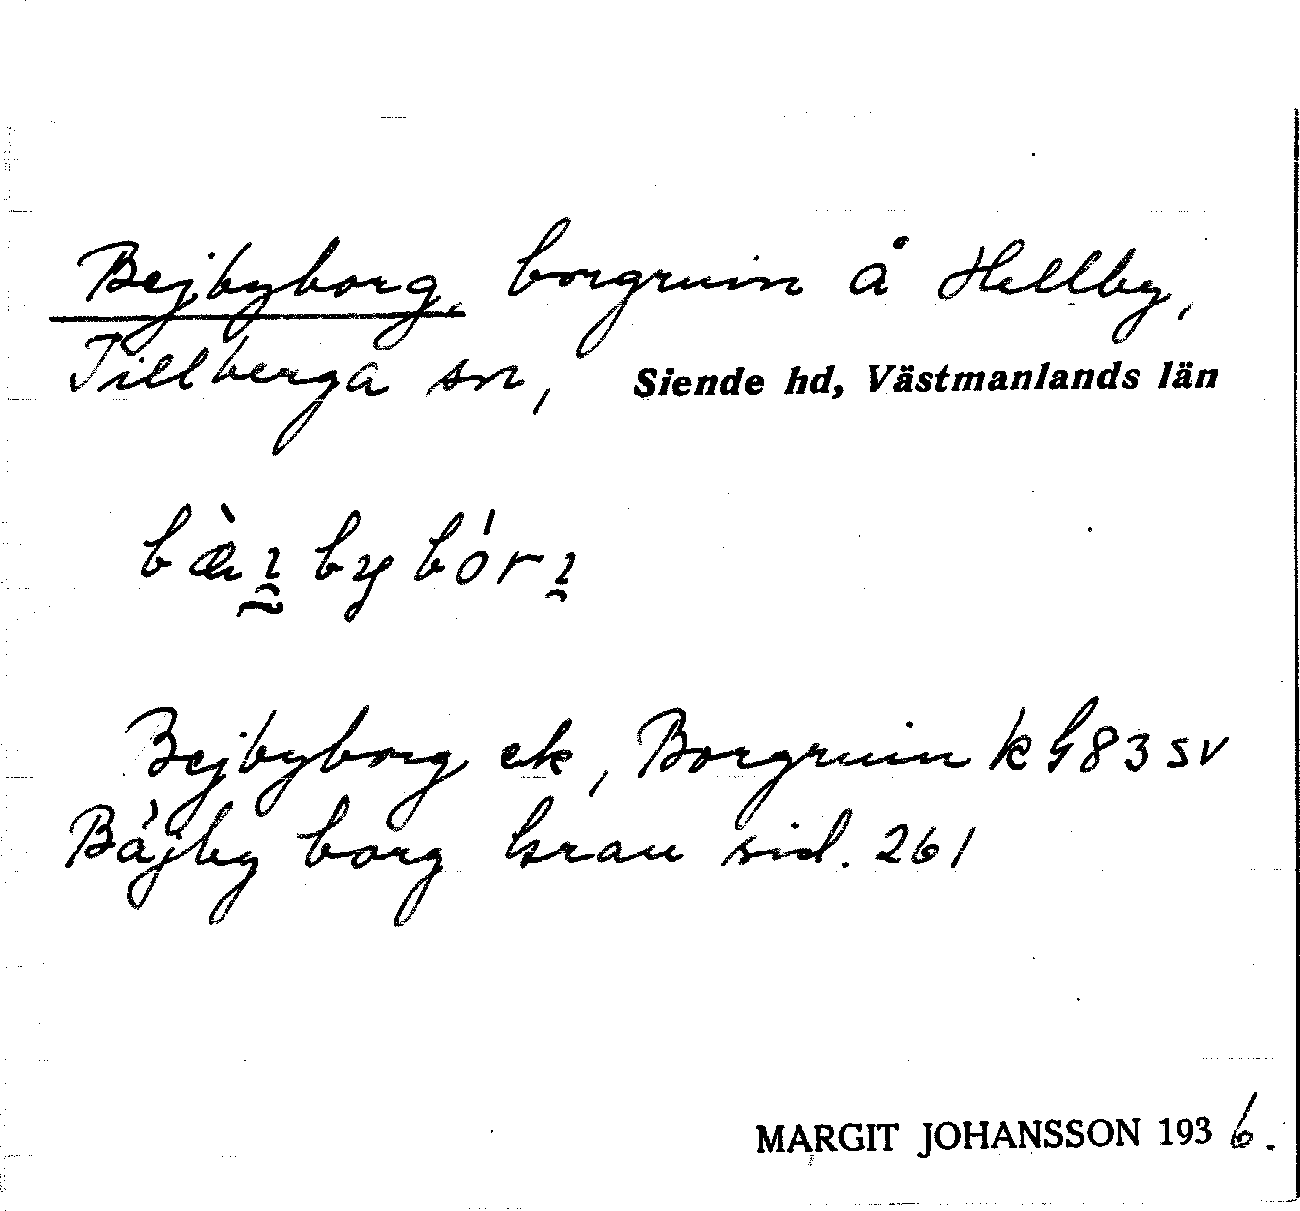 Bejbyborg, borgruin å Hellby,
Tillberga sn, Siende hd, Västmanlands län
bæ̀ı̰bybórı̰
Bejbyborg ek, Borgruin k G83 SV
Båjby borg Grau sid. 261
MARGIT JOHANSSON 1936.